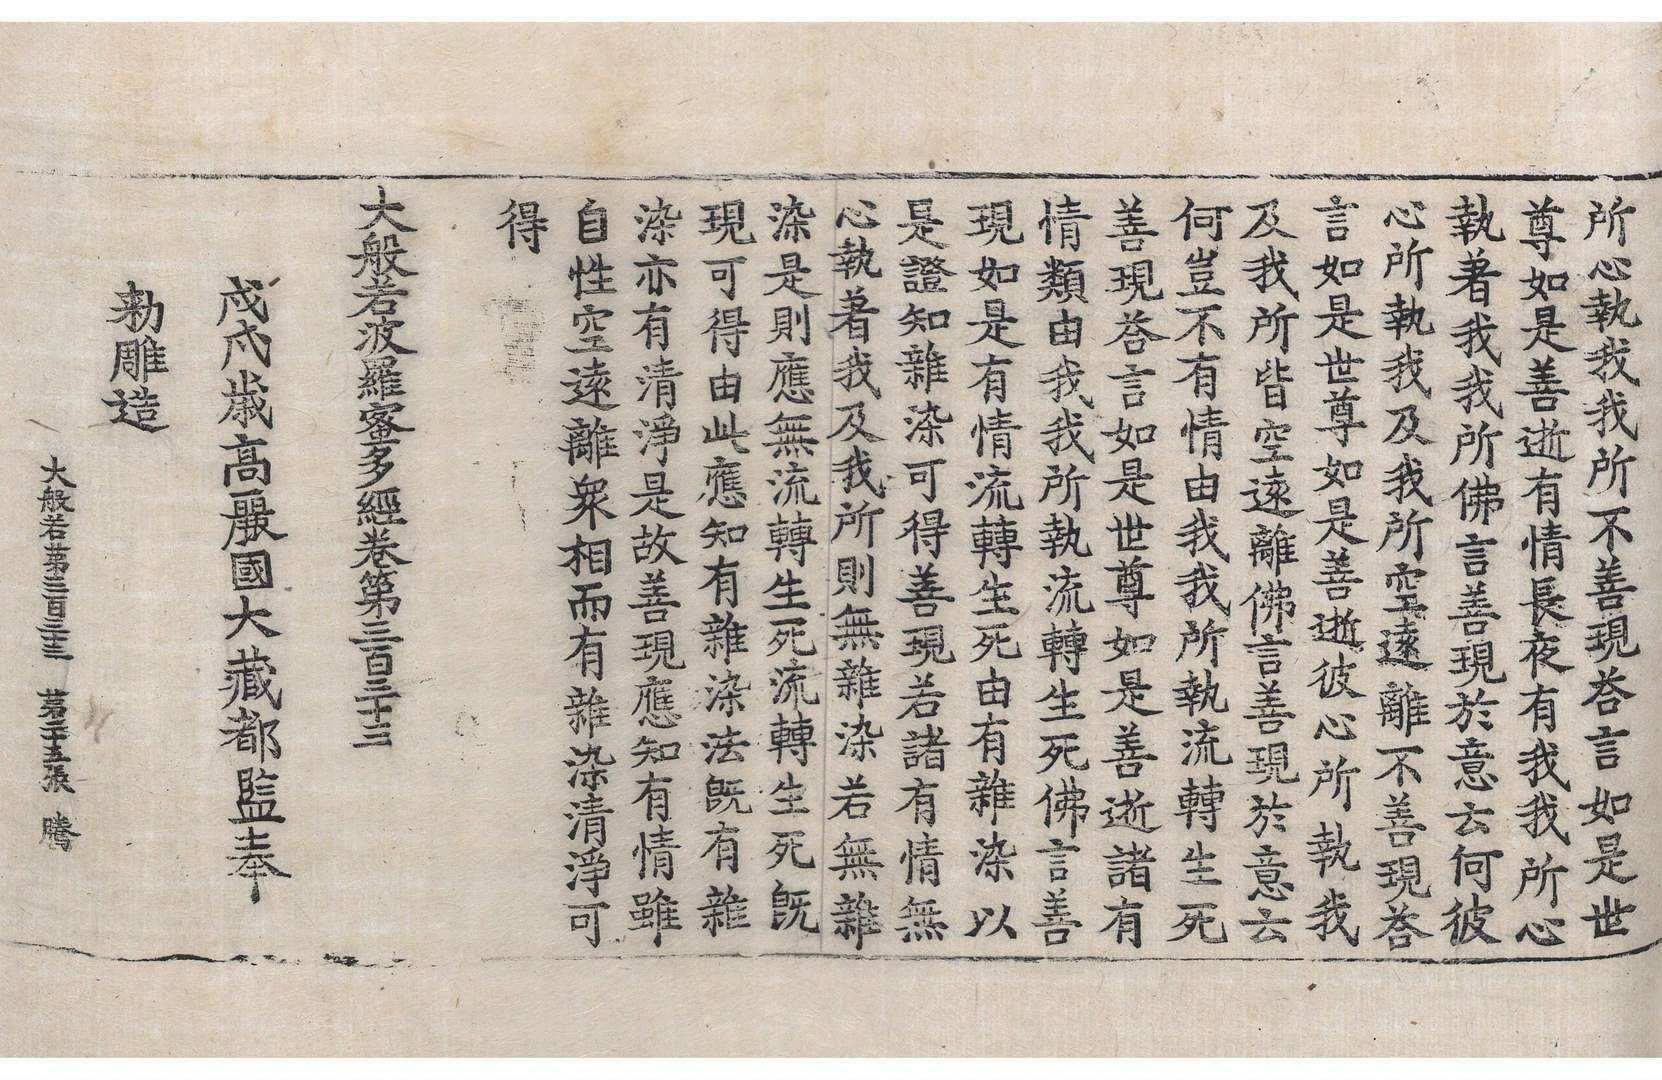 所心執我我所不善現荅言如是世
尊如是善逝有情長夜有我我所心
執著我我所佛言善現於意云何彼
心所執我及我所空遠離不善現荅
言如是世尊如是善逝彼心所執我
及我所皆空遠離佛言善現於意云
何豈不有情由我我所執流轉生死
善現荅言如是世尊如是善逝諸有
情類由我我所執流轉生死佛言善
現如是有情流轉生死由有雜染以
是證知雜染可得善現若諸有情無
心執著我及我所則無雜染若無雜
染是則應無流轉生死流轉生死旣
現可得由此應知有雜染法旣有雜
染亦有清淨是故善現應知有情雖
自性空遠離衆相而有雜染清淨可
得
大般若波羅蜜多經卷第三百三十三
戊戌歲高麗國大藏都監奉
勅雕造
大般若第三百三十三 第二十五張 騰